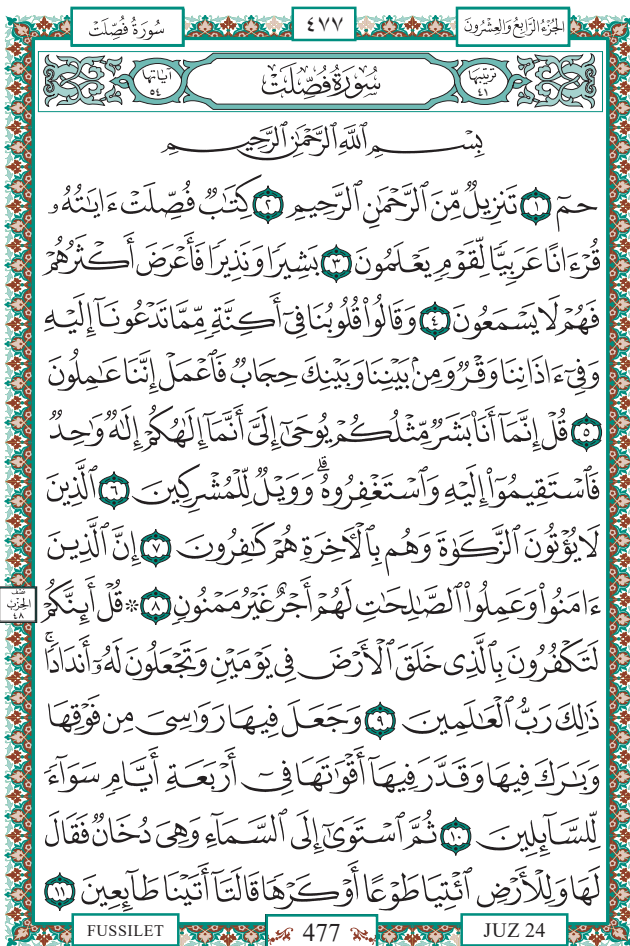 سُورَةُ فُصِّلَتْ
٤٧٧
الجُزْءُ الرَّابِعُ وَالعِشْرُونَ
ترتيبها
٤١
سُورَةُ فُصِّلَتْ
آياتها
٥٤
بِسْمِ ٱللَّهِ ٱلرَّحْمَٰنِ ٱلرَّحِيمِ
حمٓ ١ تَنزِيلٌ مِّنَ ٱلرَّحْمَٰنِ ٱلرَّحِيمِ ٢ كِتَٰبٌ فُصِّلَتْ ءَايَٰتُهُۥ
قُرْءَانًا عَرَبِيًّا لِّقَوْمٍ يَعْلَمُونَ ٣ بَشِيرًا وَنَذِيرًا فَأَعْرَضَ أَكْثَرُهُمْ
فَهُمْ لَا يَسْمَعُونَ ٤ وَقَالُوا۟ قُلُوبُنَا فِىٓ أَكِنَّةٍ مِّمَّا تَدْعُونَآ إِلَيْهِ
وَفِىٓ ءَاذَانِنَا وَقْرٌ وَمِنۢ بَيْنِنَا وَبَيْنِكَ حِجَابٌ فَٱعْمَلْ إِنَّنَا عَٰمِلُونَ
٥ قُلْ إِنَّمَآ أَنَا۠ بَشَرٌ مِّثْلُكُمْ يُوحَىٰٓ إِلَىَّ أَنَّمَآ إِلَٰهُكُمْ إِلَٰهٌ وَٰحِدٌ
فَٱسْتَقِيمُوٓا۟ إِلَيْهِ وَٱسْتَغْفِرُوهُ ۗ وَوَيْلٌ لِّلْمُشْرِكِينَ ٦ ٱلَّذِينَ
لَا يُؤْتُونَ ٱلزَّكَوٰةَ وَهُم بِٱلْـَٔاخِرَةِ هُمْ كَٰفِرُونَ ٧ إِنَّ ٱلَّذِينَ
ءَامَنُوا۟ وَعَمِلُوا۟ ٱلصَّٰلِحَٰتِ لَهُمْ أَجْرٌ غَيْرُ مَمْنُونٍ ٨ ۞ قُلْ أَئِنَّكُمْ
نصف
الحزب
٤٨
لَتَكْفُرُونَ بِٱلَّذِى خَلَقَ ٱلْأَرْضَ فِى يَوْمَيْنِ وَتَجْعَلُونَ لَهُۥٓ أَندَادًا ۚ
ذَٰلِكَ رَبُّ ٱلْعَٰلَمِينَ ٩ وَجَعَلَ فِيهَا رَوَٰسِىَ مِن فَوْقِهَا
وَبَٰرَكَ فِيهَا وَقَدَّرَ فِيهَآ أَقْوَٰتَهَا فِىٓ أَرْبَعَةِ أَيَّامٍ سَوَآءً
لِّلسَّآئِلِينَ ١٠ ثُمَّ ٱسْتَوَىٰٓ إِلَى ٱلسَّمَآءِ وَهِىَ دُخَانٌ فَقَالَ
لَهَا وَلِلْأَرْضِ ٱئْتِيَا طَوْعًا أَوْ كَرْهًا قَالَتَآ أَتَيْنَا طَآئِعِينَ ١١
FUSSILET
477
JUZ 24